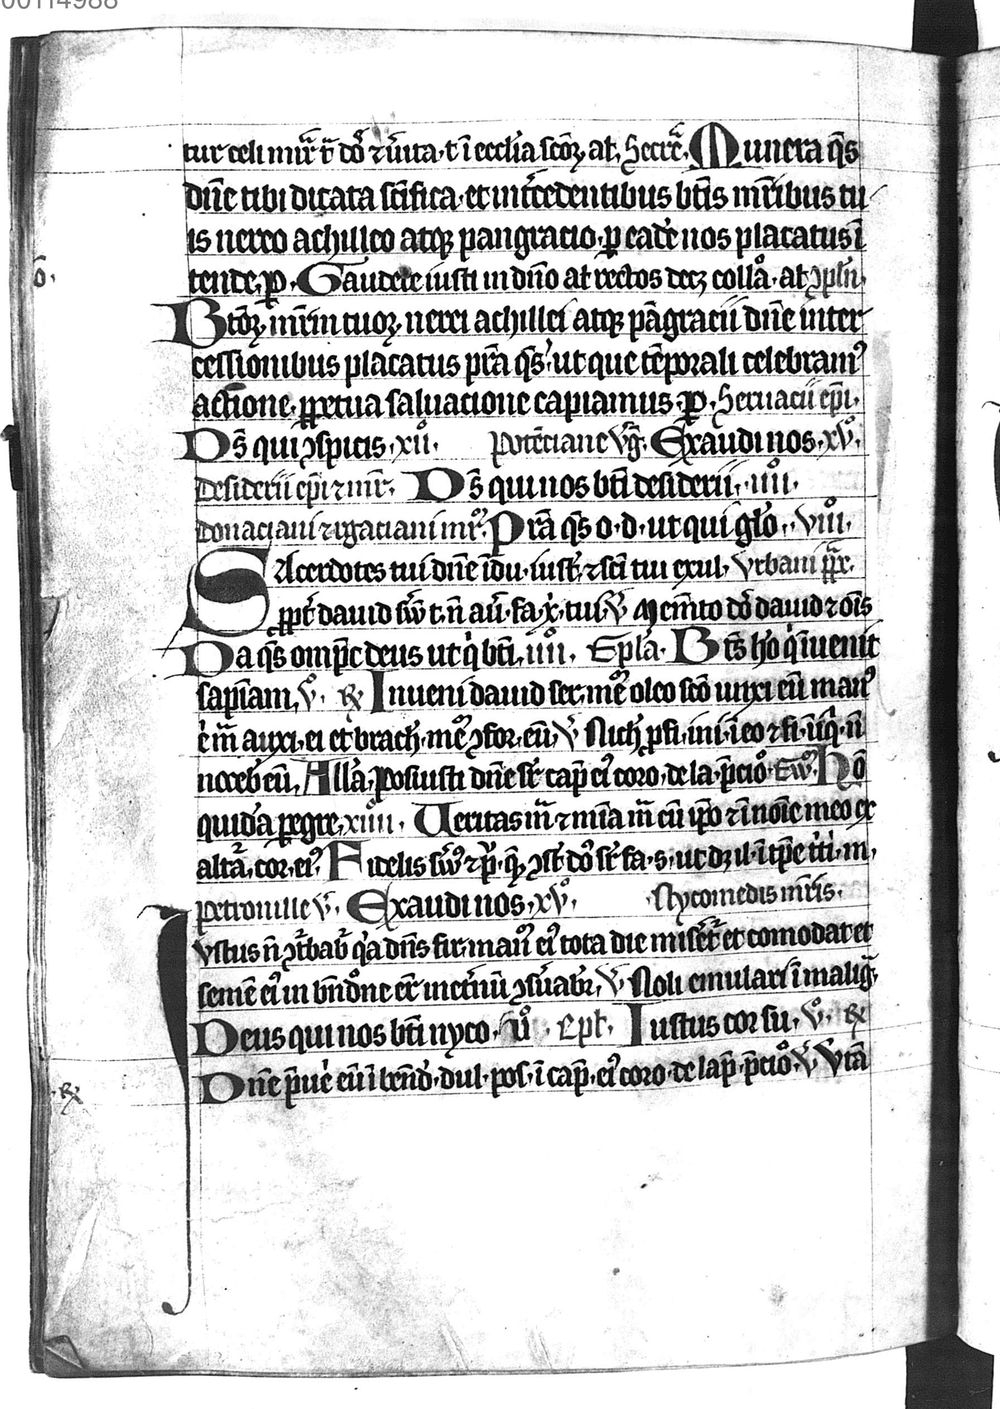 00114988
tur celi mir̄a t̄ dō ⁊ ūita· t̄ ī eccl̄ia sc̄oꝝ at, Secre͂. Munera q̄s
dn̄e tibi dicata sc̄ifica· et int̄cedentibus bt̄is mr̄ibus tu
is nereo achilleo atqꝫ pangracio· ꝑ eadē nos placatus ī
tende, ꝑ· Gaudete iusti in dn̄o at rectos decꝫ collā· at ꝯpln̄·
Bt̄oꝝ mr̄m tuoꝝ nerei achillei atqꝫ pāgracii dn̄e inter
cessionibus placatus pr̄a q̄s· ut que tēporali celebram᷒
actione· ꝑpetua saluacione capiamus· ꝑ· Seruacii ep̄i·
Ds̄ qui ꝯspicis· xııͦ· Potēciane v̄g̃· Exaudi nos· xvͦ·
Desiderii ep̄i ⁊ mr̄· Ds̄ qui nos bt̄i desiderii, ıııͦı·
donaciani ⁊ rgaciani mr̄· Pr̄a q̄s o· d· ut qui gl̄o· vııͦı·
SAcerdotes tui dn̄e īdu· iust̄ ⁊ sc̄i tui exul, Vrbani pp̄e·
ꝓpt̄ dauid sw̄ t· n̄ au̅· fa· x̄· tui v̄ Mem̄to dō dauid ⁊ oı̄s
Da q̄s omp̄c deus ut q̇ bt̄i, ııͦıı· Epl̄a· Bt̄s ho q̇ īuenit
sapı̄am, vͦ· ℟ Inueni dauid ser· me᷒ oleo sc̄o unxi eū man᷒
e̅ m̄ auxi· ei et brach̄· me᷒ ꝯfor· eū, v̄ Nich̄ ꝓfi· ini· ī eo ⁊ fi· īiq̇· n̄
noceb̄ eū, All̄a· Posuisti dn̄e sr̄ cap̄ ei᷒ coro· de la· p̄cio̅· Ew᷒· Ho̅
quid̄a ꝑegre, xıııͦı· Ueritas m̄ ⁊ mı̄a m̄ cū ip̄o ⁊ ī noı̄e meo ex
altā, cor· ei᷒· Fidelis sw᷒ ⁊ p̄· q̄ꝫ ꝯst̄ do̅ sr̄ fa· s· ut dꝫ il· ī tp̄e t̄ri· m,
Petronille v̄· Exaudi nos, xvͦ· Nycomedis mr̄is·
Iustus n̄ ꝯt̄bab̄ q̇a dn̄s fir· man᷒ ei᷒ tota die mis̄et̄ et comodat et
semē ei᷒ in bn̄dōne er̄ inet̄nū ꝯs̄uabr̄, v̄ Noli emulari ī malig̃,
Deus qui nos bt̄i nyco· ııͦ· Epl̄· Iustus cor su, vͦ· ℟
Dn̄e p̄ue̅ eū ī bn̄d̄· dul· pos· ī cap̄· ei᷒ coro· de lap̄· p̄cio᷒ v̄ Vitā
℟